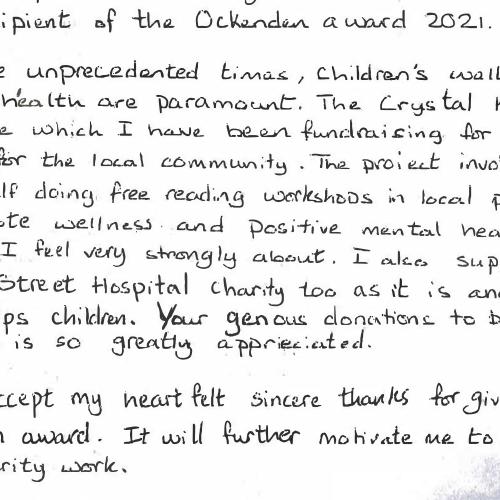 ipient of the Ockenden award 2021.
e unprecedented times, children's well
health are paramount. The Crystal K
e which I have been fundraising for
for the local community. The project invo
lf doing free reading workshops in local p
ote wellness and positive mental hea
I feel very strongly about. I also sup
Street Hospital charity too as it is an
ps children. Your genous donations to b
is so greatly appreciated.
ccept my heart felt sincere thanks for giv
n award. It will further motivate me to
rity work.